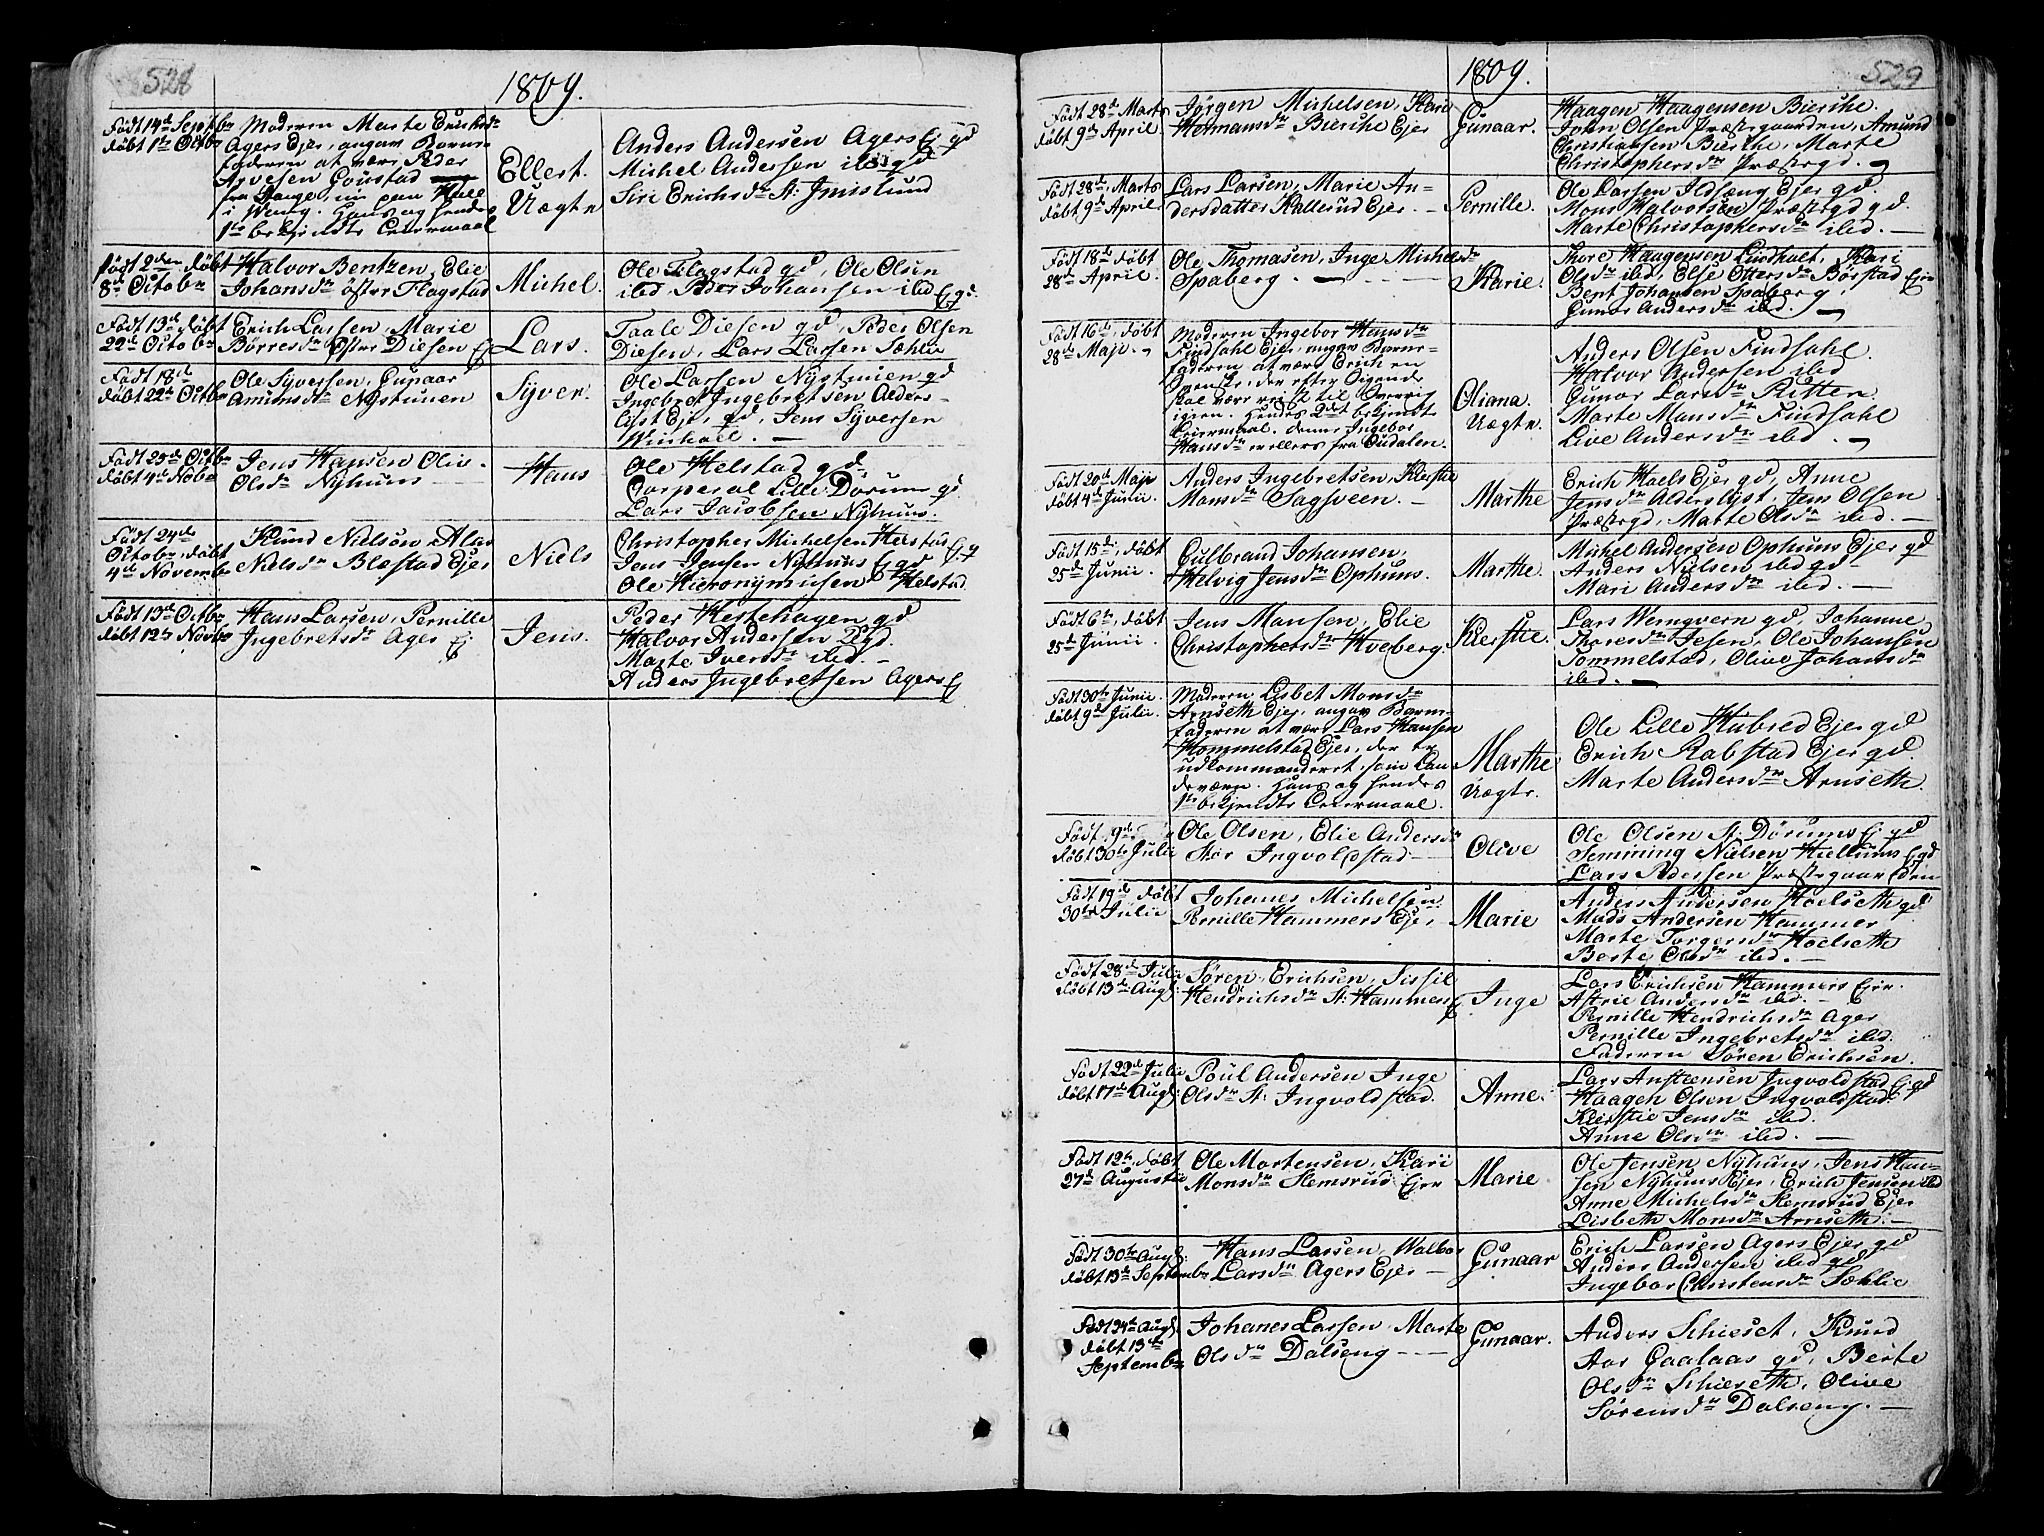 528
1809.
Født 14d Septbr
døbt 1te Octbr
Moderen Marte Erichsdr
Agers Ejer, angav Barne-
faderen at være Peder
Arvesen Goustad
fra Vange, nu paa Hoel
i Weng. Hans og hendes
1te bekjendte Leiermaal
Ellert.
Uægte
Anders Andersen Agers Ej gd
Michel Andersen ibid gd
Siri Erichsdr St: Imislund
Født 2den døbt
8de Octobr
Halvor Bentzen, Elie
Johansdr öster Flagstad
Michel.
Ole Flagstad gd, Ole Olsen
ibid, Peder Johansen ibid Ej gd.
Født 13d døbt
22d Octobr
Erich Larsen, Marie
Börresdr Öster Diesen Ej
Lars.
Taale Diesen gd, Peder Olsen
Diesen, Lars Larsen Sæhlie
Født 18d
døbt 22d Octbr
Ole Syversen, Gunaar
Amunsdr Nystuen
Syver.
Ole Larsen Nystuen gd
Ingebret Ingebretsen Alders-
lyst Ej gd, Jens Syversen
Født 25d Octbr
døbt 4d Novbr
Jens Hansen Oliv
Olsdr Nyhuus
Hans
Ole Helstad gd
Corperal Lille Dörum gd
Lars Jacobsen Nyhuus.
Født 24d
Octobr, døbt
4d Novembr
Knud Nielsön, Alis
Nielsdr Blæstad Ejer
Niels
Christopher Michelsen Helstad Ej gd
Jens Jensen Nyhuus Ej gd
Ole Hieronymusen Helstad
Født 13d Octbr
døbt 12te Novbr
Hans Larsen, Pernille
Ingebretsdr Ager Ej
Jens.
Peder Hestehagen gd
Halvor Andersen gd.
Marte Iversdr ibid.
Anders Ingebretsen Agers Ej
529
1809.
Født 28d Marts
døbt 9de April
Jörgen Michelsen, Kari
Hermansdr Bierche Ejer
Gunaar.
Haagen Haagensen Bierche.
John Olsen Præstegaarden, Amund
Christiansen Bierche, Marte
Christophersdr Præstegd.
Født 28d Marts
døbt 9d April
Lars Larsen, Marie An-
dersdatter Kallerud Ejer
Pernille.
Ole Larsen Ildsæng Ejer gd.
Mons Halvorsen Præstegd gd.
Marte Christophersdr ibid.
Født 18d døbt
28d April
Ole Thomasen, Inge Michelsdr
Spaberg.
Karie.
Thore Haagensen Lindholt, Kari
Olsdr ibid, Else Ottersdr Börstad Ejer
Bent Johansen Spaberg,
Gunor Andersdr ibid.
Født 16de, døbt
28d Maji.
Moderen Ingebor Hansdr
Findsahl Ejer, angav Barne-
faderen at være Erich en
Svenske, der efter Sigende
skal være reist til Sverrig
igien. Hendes 2det bekjendte
Leiermaal. denne Ingebor
Hansdr er ellers fra Oudalen.
Oliana.
Uægte.
Anders Olsen Findsahl
Halvor Andersen ibid
Gunor Larsdr Ritten
Marte Mansdr Findsahl
Live Andersdr ibid.
Født 20d Maji
døbt 4d Junii.
Anders Ingebretsen, Kjerstie
Mansdr Sagsveen.
Marthe
Erich Hoels Ejer gd, Anne
Jensdr Alderslyst, Jens Olsen
Præstegd, Marte Olsdr ibid.
Født 15de, døbt
25d Junii.
Gulbrand Johansen,
Helvig Jensdr Ophuus.
Marthe.
Michel Andersen Ophuus Ejer gd
Anders Nielsen ibid gd
Mari Andersdr ibid.
Født 6te, døbt
25d Junii.
Jens Mansen, Elie
Christophersdr Hveberg.
Kierstie.
Lars Wemgvern gd, Johanne
Thoresdr Jesen, Ole Johansen
Sommelstad, Olive Johansdr
ibid.
Født 30te Junii.
døbt 9d Julii.
Moderen Lisbet Monsdr
Arnseth Ejer, angav Barne-
faderen at være Lars Hansen
Hommelstad Ejer, der er
udkommanderet som Lan-
deværn. Hans og hendes
1te bekjendte Leiermaal.
Marthe
Uægte.
Ole Lille Hubred Ejer gd
Erich Rabstad Ejer gd.
Marte Andersdr Arnseth.
Født 9d
døbt 30te Julii
Ole Olsen, Elie Andersdr
Stor Ingvoldstad
Olive
Ole Olsen St: Dörums Ej gd
Semming Nielsen Hiellums Ej gd
Lars Pedersen Præstegaarden
Født 19d døbt
30te Julii
Johanes Michelsen
Pernille Hammers Ejer
Marie
Anders Andersen Hoelseth gd
Mads Andersen Hammer
Marte Torgersdr Hoelseth
Berte Olsdr ibid.
Født 28d Julii
døbt 13de Augs:
Sören Erichsen, Sissil
Hendrichsdr St: Hammers Ej.
Inge
Lars Erichsen Hammers Ejer.
Astrie Andersdr ibid.
Pernille Hendrichsdr Ager
Pernille Ingebretsdr ibid.
Faderen Sören Erichsen.
Født 22d Julii
døbt 17d Augs:
Poul Andersen Inge
Olsdr St: Ingvoldstad.
Anne.
Lars Anstensen Ingvoldstad Ej gd
Haagen Olsen Ingvoldstad.
Kierstie Jensdr ibid.
Anne Olsdr ibid.
Født 12te, døbt
27d Augustii
Ole Mortensen, Kari
Monsdr Stemsrud Ejer
Marie
Ole Jensen Nyhuus, Jens Han-
sen Nyhuus Ejer, Erich Jensen ibid
Anne Michelsdr Stemsrud Ejer
Lisbeth Monsdr Arnseth.
Født 30te Augs:
døbt 13d Septembr
Hans Larsen, Walbor
Larsdr Agers Ejer
Gunaar
Erich Larsen Agers Ejer gd
Anders Andersen ibid gd
Ingebor Christensdr Sæhlie
Født 24de Augs:
døbt 13de
Septembr
Johanes Larsen, Marte
Olsdr Dalseng
Gunaar.
Anders Schieset, Knud
Aar Gaalaas gd, Berte
Olsdr Schieseth, Olive
Sörensdr Dalseng.